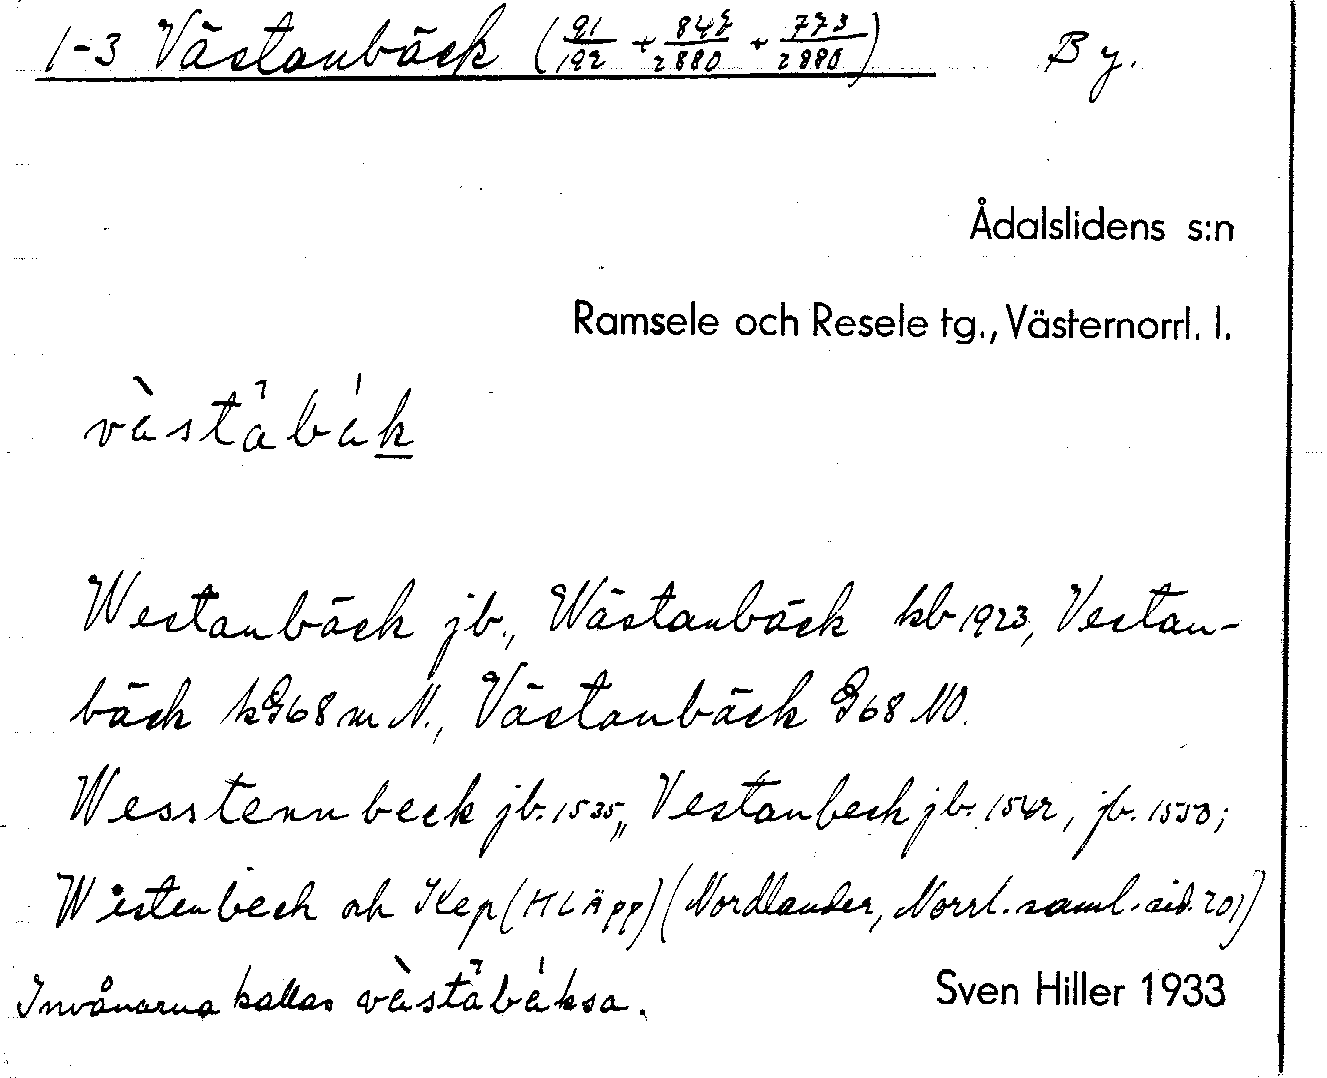 1-3 Västanbäck (91/192 + 847/2880 + 773/2880) By.
Ådalslidens s:n
Ramsele och Resele tg., Västernorrl. l.
vàstàbák
Westanbäck jb., Wästanbäck kb 1923, Vestan-
bäck kG68 m N., Västanbäck G68 NO.
Wesstennbeck jb. 1535, Vestanbeck jb. 1542, jb. 1550;
Westenbeck och (Nordlander, Norrl. saml. sid. 201)
Invånarna kallas vàstàbáksa.
Sven Hiller 1933